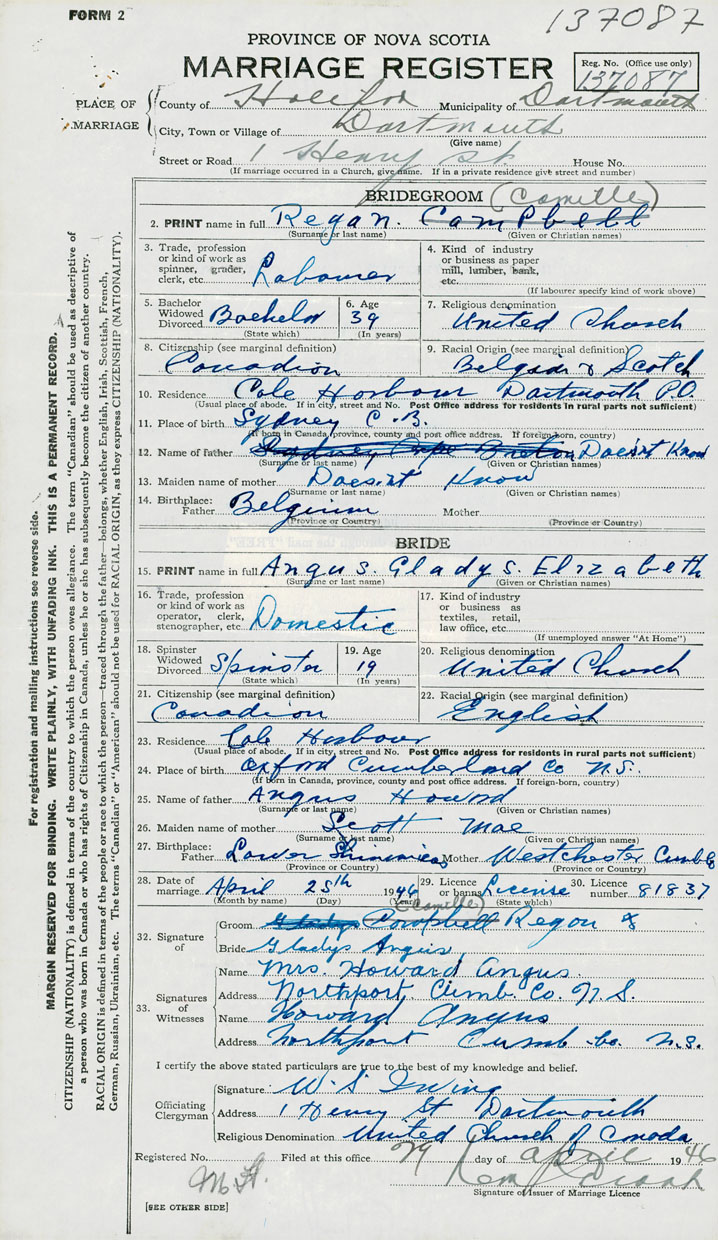 FORM 2
137087
PROVINCE OF NOVA SCOTIA
MARRIAGE REGISTER
Reg. No. (Office use only)
137087
PLACE OF MARRIAGE
County of Halifax Municipality of Dartmouth
City, Town or Village of Dartmouth
(Give name)
Street or Road 1 Henry St. House No.
(If marriage occurred in a Church, give name. If in a private residence give street and number)
BRIDEGROOM (Camille)
2. PRINT name in full Regan. Campbell
(Surname or last name) (Given or Christian names)
3. Trade, profession or kind of work as spinner, grader, clerk, etc. Labourer
4. Kind of industry or business as paper mill, lumber, bank, etc.
(If labourer specify kind of work above)
5. Bachelor Widowed Divorced Bachelor
(State which)
6. Age 39
(In years)
7. Religious denomination United Church
8. Citizenship (see marginal definition) Canadian
9. Racial Origin (see marginal definition) Belgain & Scotch
10. Residence Cole Harbour Dartmouth P.O.
(Usual place of abode. If in city, street and No. Post Office address for residents in rural parts not sufficient)
11. Place of birth Sydney C.B.
(If born in Canada, province, county and post office address. If foreign-born, country)
12. Name of father Sydney Cape Breton Doesn't Know
(Surname or last name) (Given or Christian names)
13. Maiden name of mother Doesn't Know
(Surname or last name) (Given or Christian names)
14. Birthplace: Father Belgium Mother
(Province or Country) (Province or Country)
BRIDE
15. PRINT name in full Angus. Gladys. Elizabeth
(Surname or last name) (Given or Christian names)
16. Trade, profession or kind of work as operator, clerk, stenographer, etc. Domestic
17. Kind of industry or business as textiles, retail, law office, etc.
(If unemployed answer "At Home")
18. Spinster Widowed Divorced Spinster
(State which)
19. Age 19
(In years)
20. Religious denomination United Church
21. Citizenship (see marginal definition) Canadian
22. Racial Origin (see marginal definition) English
23. Residence Cole Harbour
(Usual place of abode. If in city, street and No. Post Office address for residents in rural parts not sufficient)
24. Place of birth Oxford Cumberland Co N.S.
(If born in Canada, province, county and post office address. If foreign-born, country)
25. Name of father Angus Howard
(Surname or last name) (Given or Christian names)
26. Maiden name of mother Scott Mae
(Surname or last name) (Given or Christian names)
27. Birthplace: Father Lower Shinimicas Mother Westchester Cumb
(Province or Country) (Province or Country)
28. Date of marriage April 25th 1946
(Month by name) (Day) (Year)
29. Licence or banns License
(State which)
30. Licence number 81837
(Camille)
32. Signature of
Groom Gladys Campbell Regan
Bride Gladys Angus
33. Signatures of Witnesses
Name Mrs. Howard Angus.
Address Northport, Cumb. Co. N.S.
Name Howard Angus
Address Northport Cumb Co. N.S.
I certify the above stated particulars are true to the best of my knowledge and belief.
Officiating Clergyman
Signature: W. S. Irving
Address 1 Henry St Dartmouth
Religious Denomination United Church of Canada
Registered No. Filed at this office 29 day of April 1946
Signature of Issuer of Marriage Licence
[SEE OTHER SIDE]
For registration and mailing instructions see reverse side.
MARGIN RESERVED FOR BINDING. WRITE PLAINLY, WITH UNFADING INK. THIS IS A PERMANENT RECORD.
CITIZENSHIP (NATIONALITY) is defined in terms of the country to which the person owes allegiance. The term "Canadian" should be used as descriptive of
a person who was born in Canada or who has rights of Citizenship in Canada, unless he or she has subsequently become the citizen of another country.
RACIAL ORIGIN is defined in terms of the people or race to which the person—traced through the father—belongs, whether English, Irish, Scottish, French,
German, Russian, Ukrainian, etc. The terms "Canadian" or "American" should not be used for RACIAL ORIGIN, as they express CITIZENSHIP (NATIONALITY).